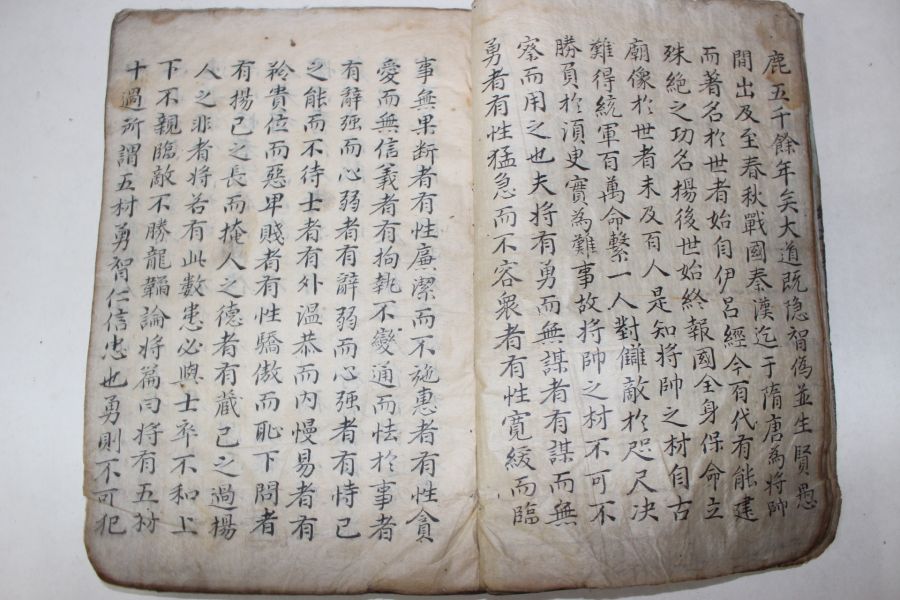 鹿五千餘年矣大道既隐智偽並生賢愚
間出及至春秋戰國秦漢迄于隋唐為將帥
而著名於世者始自伊呂經今百代有能建
殊絶之功名揚後世始終報國全身保命立
廟像於世者未及百人是知將帥之材自古
難得統軍百萬命繫一人對讎敵於咫尺决
勝負於須臾實為難事故將帥之材不可不
察而用之也夫將有勇而無謀者有謀而無
勇者有性猛急而不容衆者有性寛緩而臨
事無果断者有性廉潔而不施惠者有性貪
愛而無信義者有拘執不變通而怯於事者
有辭强而心弱者有辭弱而心强者有恃已
之能而不待士者有外温恭而内慢易者有
矜貴位而惡卑賤者有性驕傲而恥下問者
有揚己之長而掩人之德者有蔵己之過揚
人之非者將若有此數患必與士卒不和上
下不親臨敵不勝龍韜論將篇曰將有五材
十過所謂五材勇智仁信忠也勇則不可犯